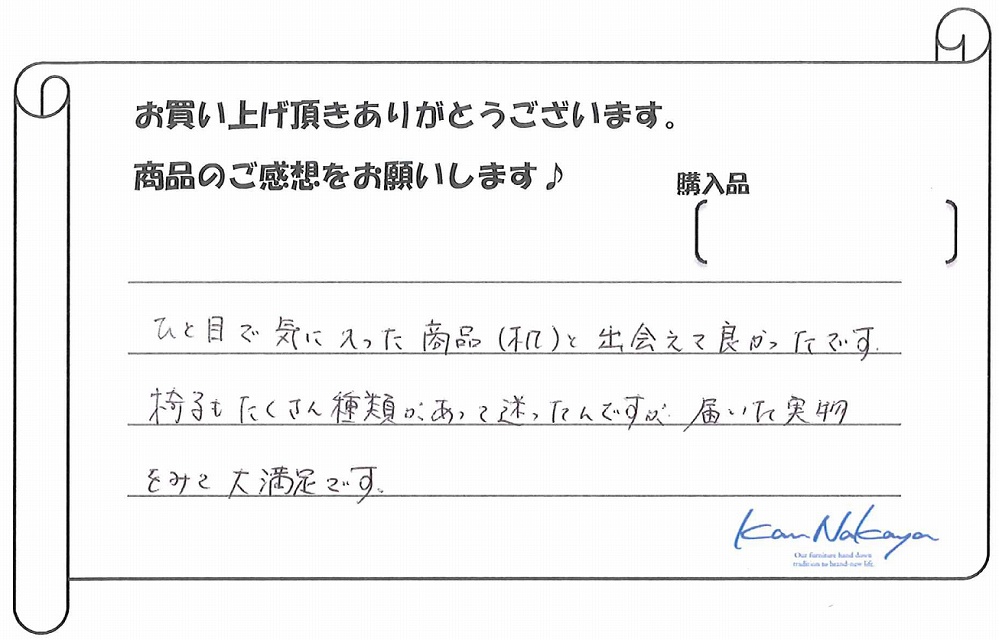 お買い上げ頂きありがとうございます。
商品のご感想をお願いします♪
購入品
ひと目で気に入った商品(机)と出会えて良かったです.
椅子もたくさん種類があって迷ったんですが 届いた実物
をみて大満足です。
Kan Nakaya
Our furniture hand down
tradition to brand-new life.